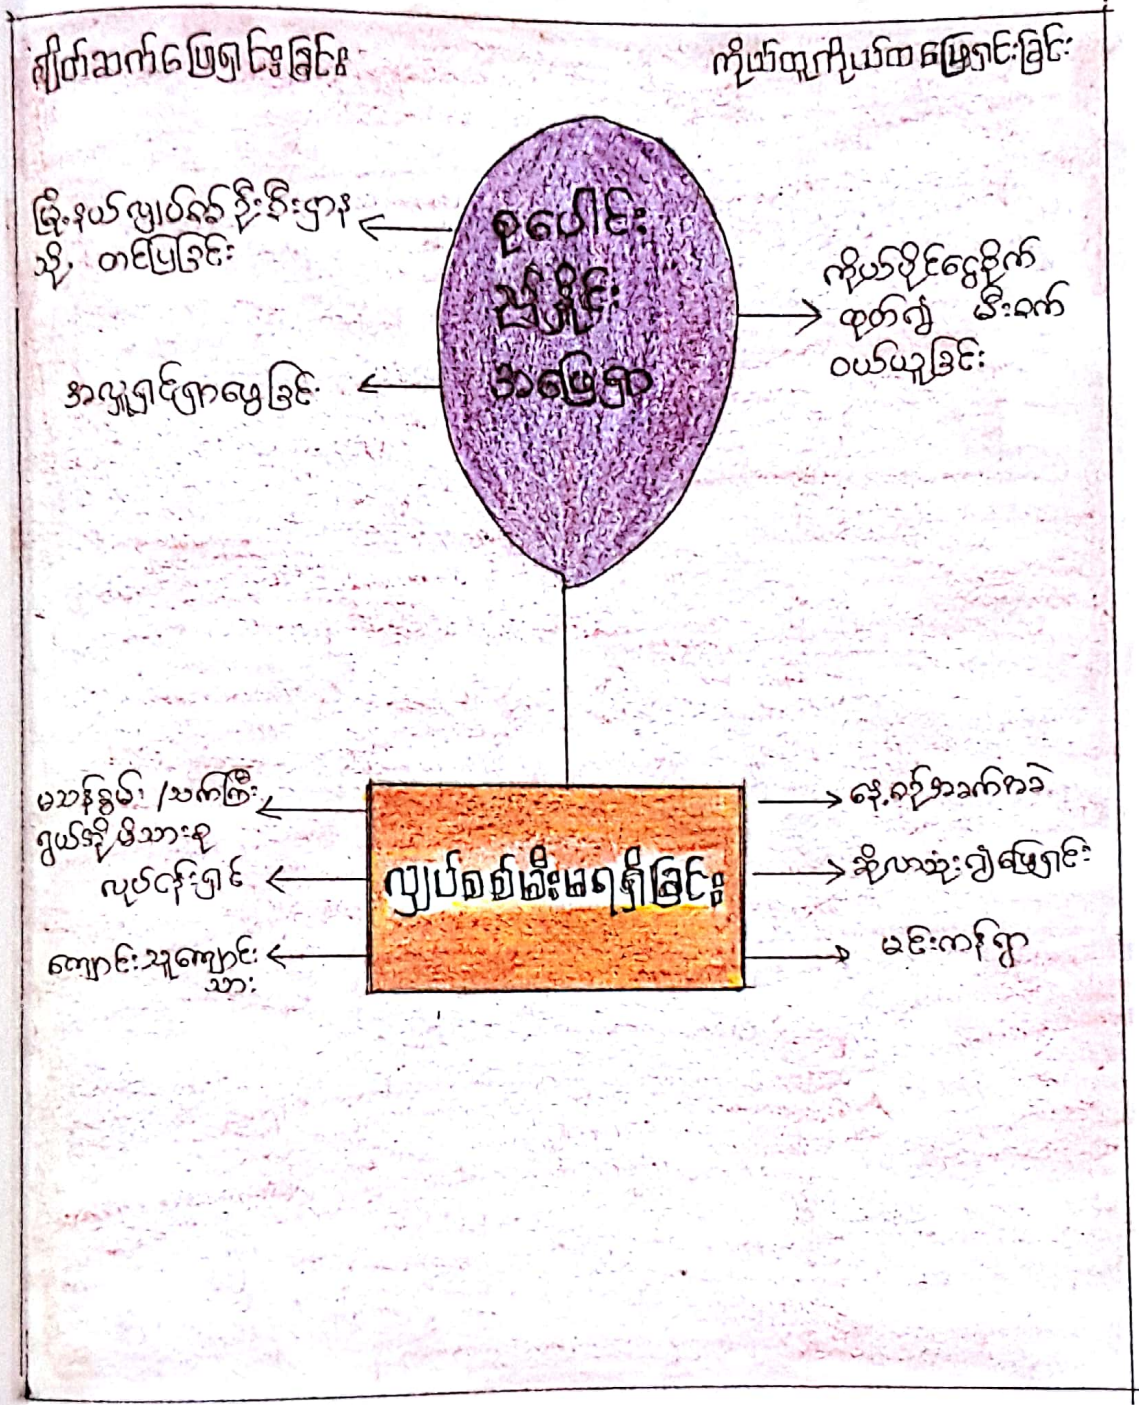 ချိတ်ဆက်ဖြေရှင်းခြင်း
ကိုယ်ထူကိုယ်ထ ဖြေရှင်းခြင်း
မြို့နယ်လျှပ်စစ်ဦးစီးဌာန
သို့ တင်ပြခြင်း
အလှူရှင်ရှာဖွေခြင်း
စုပေါင်း
ညှိနှိုင်း
အဖြေရှာ
ကိုယ်ပိုင်ငွေစိုက်
ထုတ်၍ မီးစက်
ဝယ်ယူခြင်း
မသန်စွမ်း /သက်ကြီး
ရွယ်အို မိသားစု
လုပ်ငန်းရှင်
ကျောင်းသူကျောင်း
သား
လျှပ်စစ်မီးမရရှိခြင်း
နေ့စဉ်အခက်အခဲ
ဆိုလာသုံး၍ဖြေရှင်း
မင်းကန်ရွာ